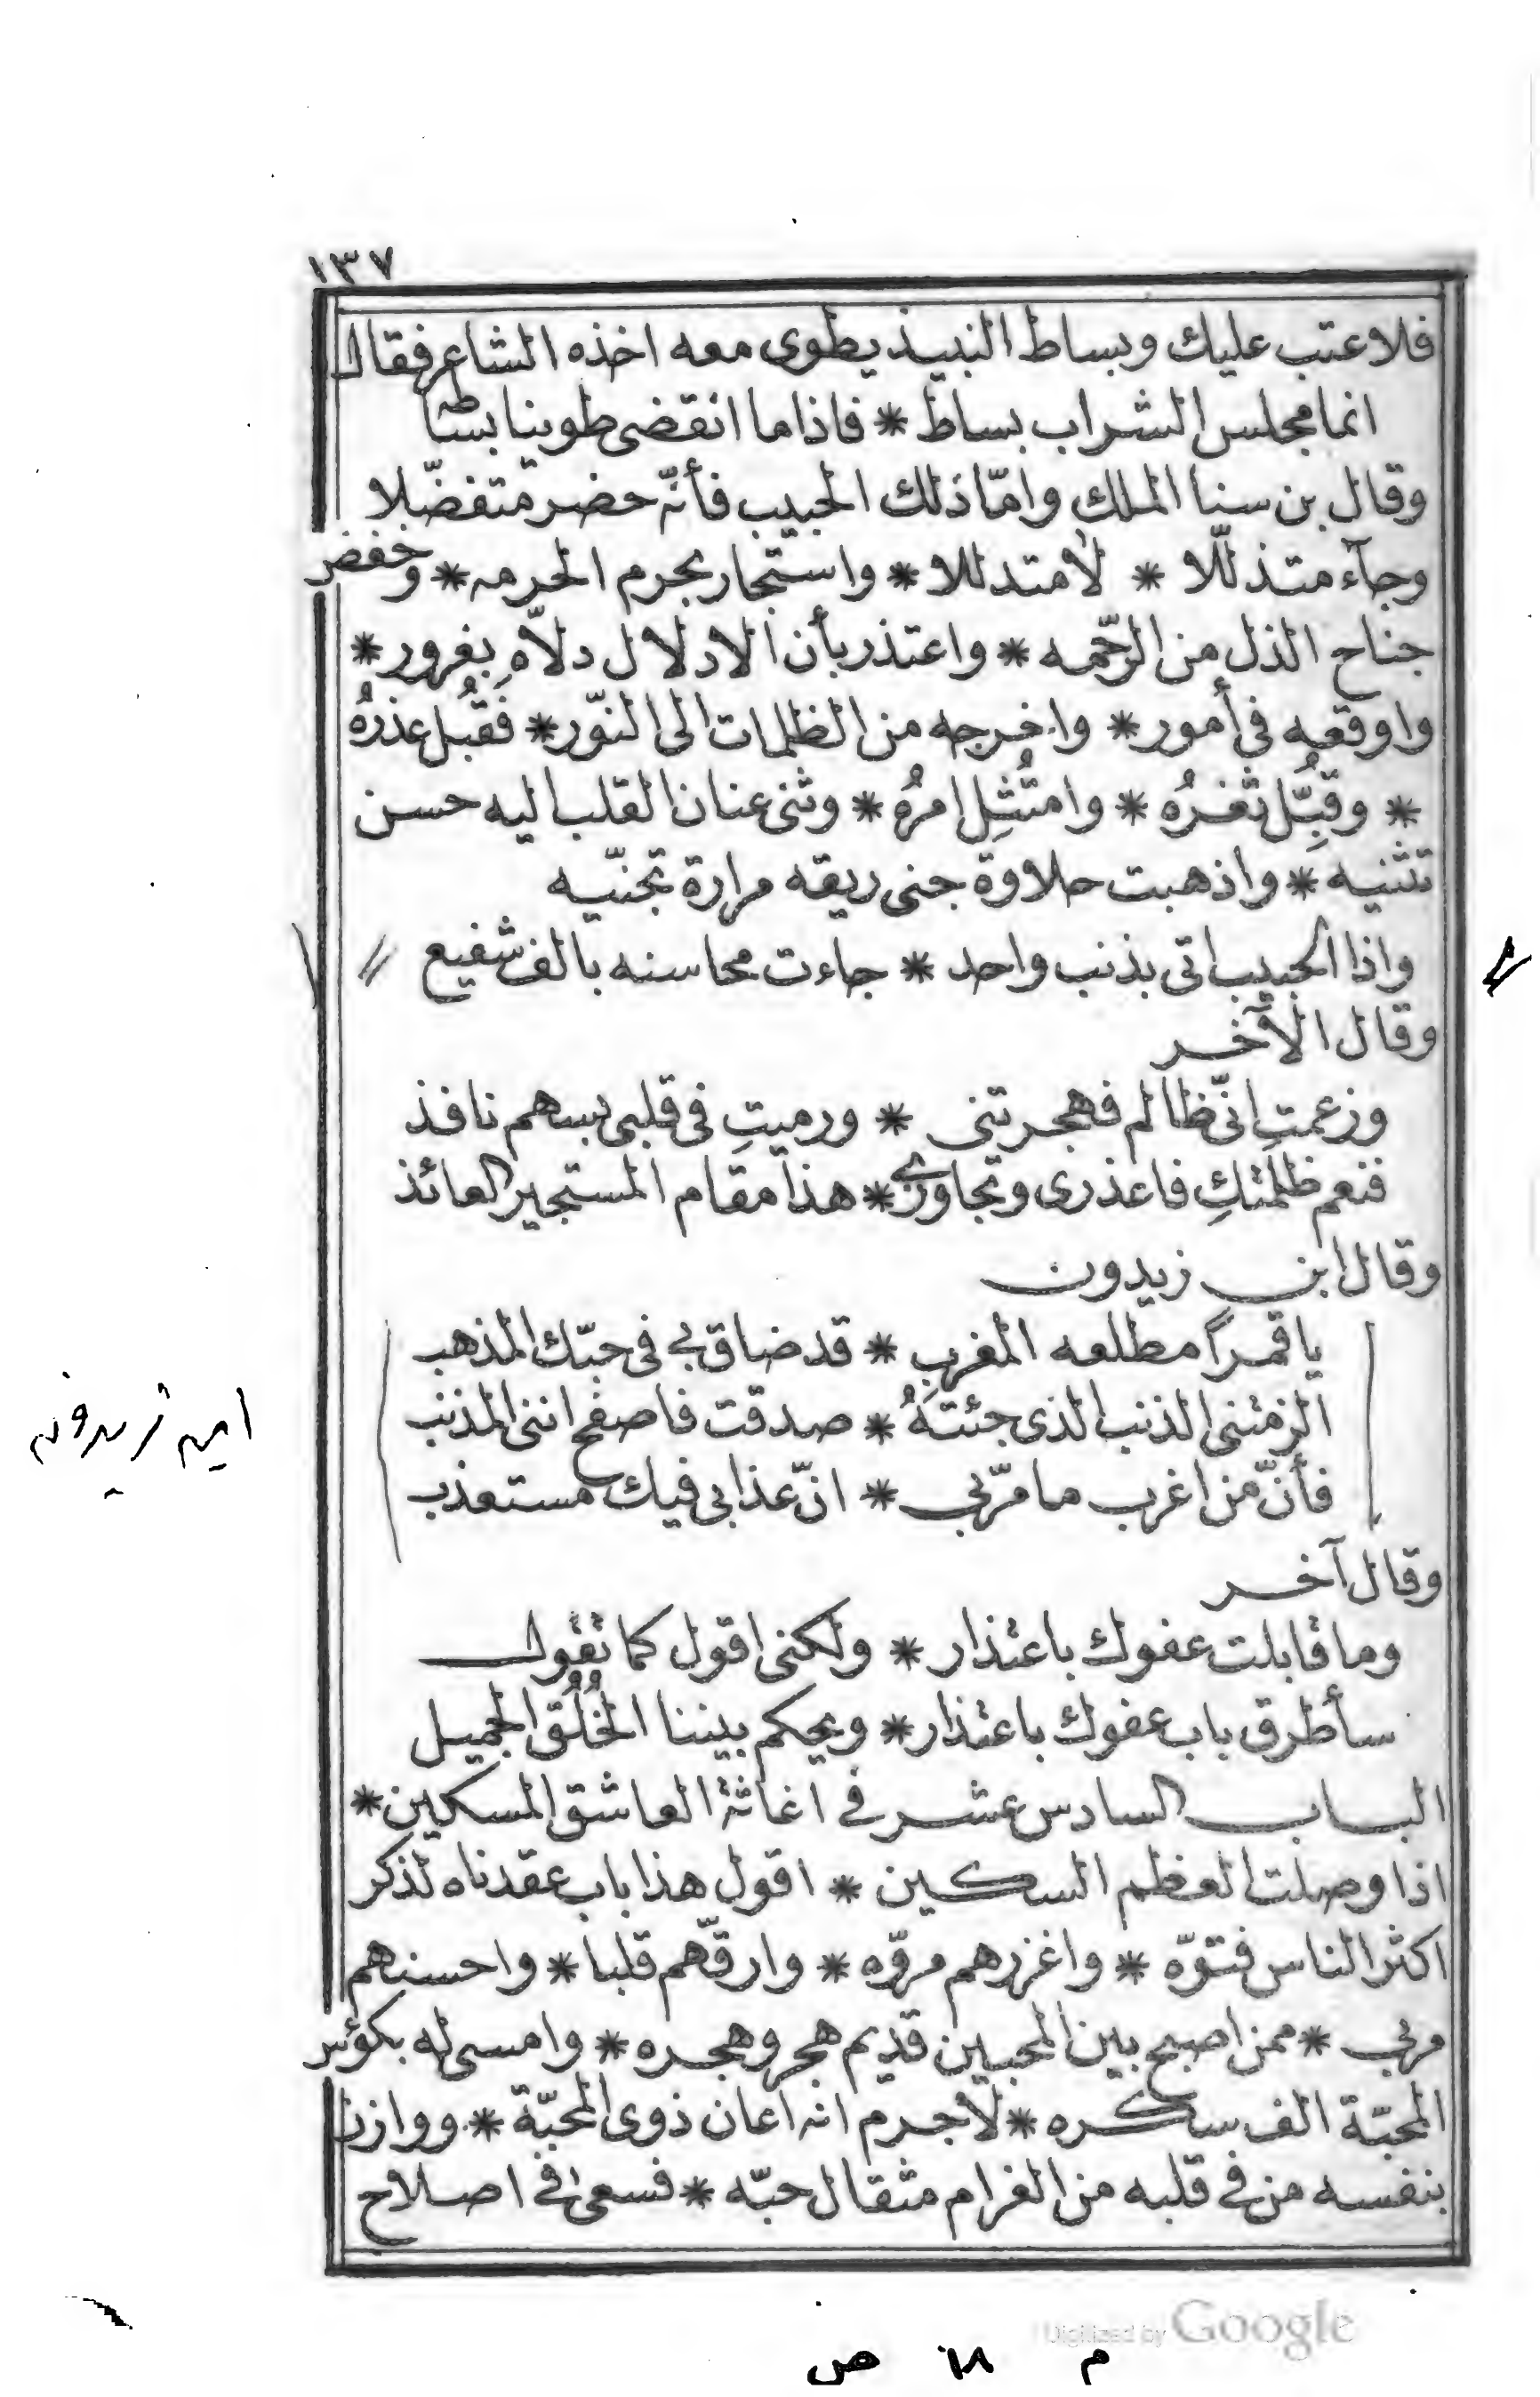 ١٣٧
فلا عتب عليك وبساط النبيذ يطوى معه اخذه الشاعر فقال
انما مجلس الشراب بساط * فاذا ما انقضى طوينا بساطه
وقال بن سنا الملك وامّا ذلك الحبيب فأنّه حضر متفضّلا
وجآء متذللّا * لا متدللا * واستجار بحرم الحرمه * وخفض
جناح الذل من الرحّمه * واعتذر بأن الادلال دلاّهِ بغرور *
واوقعه في أمور * واخرجه من الظلمات الى النوّر * فَقُبل عذرُه
* وقبِّل ثغرُه * وامتُثِل امرُه * وثنى عنان القلب اليه حسن
تثنيه * واذهبت حلاوة جنى ريقه مرارة تجنّيه
واذا الحبيب اتى بذنب واحد * جاءت محاسنه بالف شفيع
وقال الآخر
وزعمتِ انّي ظالم فهجرتني * ورميتِ في قلبي بسهم نافذ
فنعم ظلمتكِ فاعذرى وتجاوزي * هذا مقام المستجير العائذ
وقال ابن زيدون
يا قمراً مطلعه المغرب * قد ضاق بي في حبّك المذهب
الزمتنى الذنب الذى جئتهُ * صدقت فاصفح اننى المذنب
فأنّ من اغرب ما مرّبي * انّ عذابى فيك مستعذب
امير زيدون
وقال آخر
وما قابلت عفوك باعتذار * ولكنى اقول كما تقول
سأطرق باب عفوك باعتذار * ويحكم بيننا الخُلُق الجميل
الباب السادس عشر في اغاثة العاشق المسكين *
اذا وصلت العظم السكين * اقول هذا باب عقدناه لذكر
اكثر الناس فتوّه * واغزرهم مروّه * وارقّهم قلبا * واحسنهم
مربى * ممن اصبح بين المحبين قديم هجر وهجره * وامسى له بكوئس
المحبّة الف سكره * لا جرم انه اعان ذوى المحبّة * ووازن
بنفسه من في قلبه من الغرام مثقال حبّه * فسعى في اصلاح
Digitized by Google
م ١٨ ص